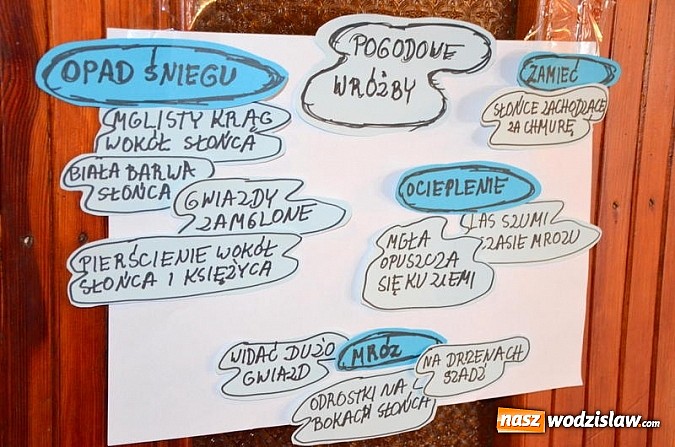 POGODOWE
WRÓŻBY
OPAD ŚNIEGU
MGLISTY KRĄG
WOKÓŁ SŁOŃCA
BIAŁA BARWA
SŁOŃCA
GWIAZDY
ZAMGLONE
PIERŚCIENIE WOKÓŁ
SŁOŃCA I KSIĘŻYCA
ZAMIEĆ
SŁOŃCE ZACHODZĄCE
ZA CHMURĘ
OCIEPLENIE
LAS SZUMI
CZASIE MROZU
MGŁA
OPUSZCZA
SIĘ KU ZIEMI
MRÓZ
WIDAĆ DUŻO
GWIAZD
NA DRZEWACH
SZADŹ
ODROSTKI NA
BOKACH SŁOŃCA
nasz wodzislaw.com